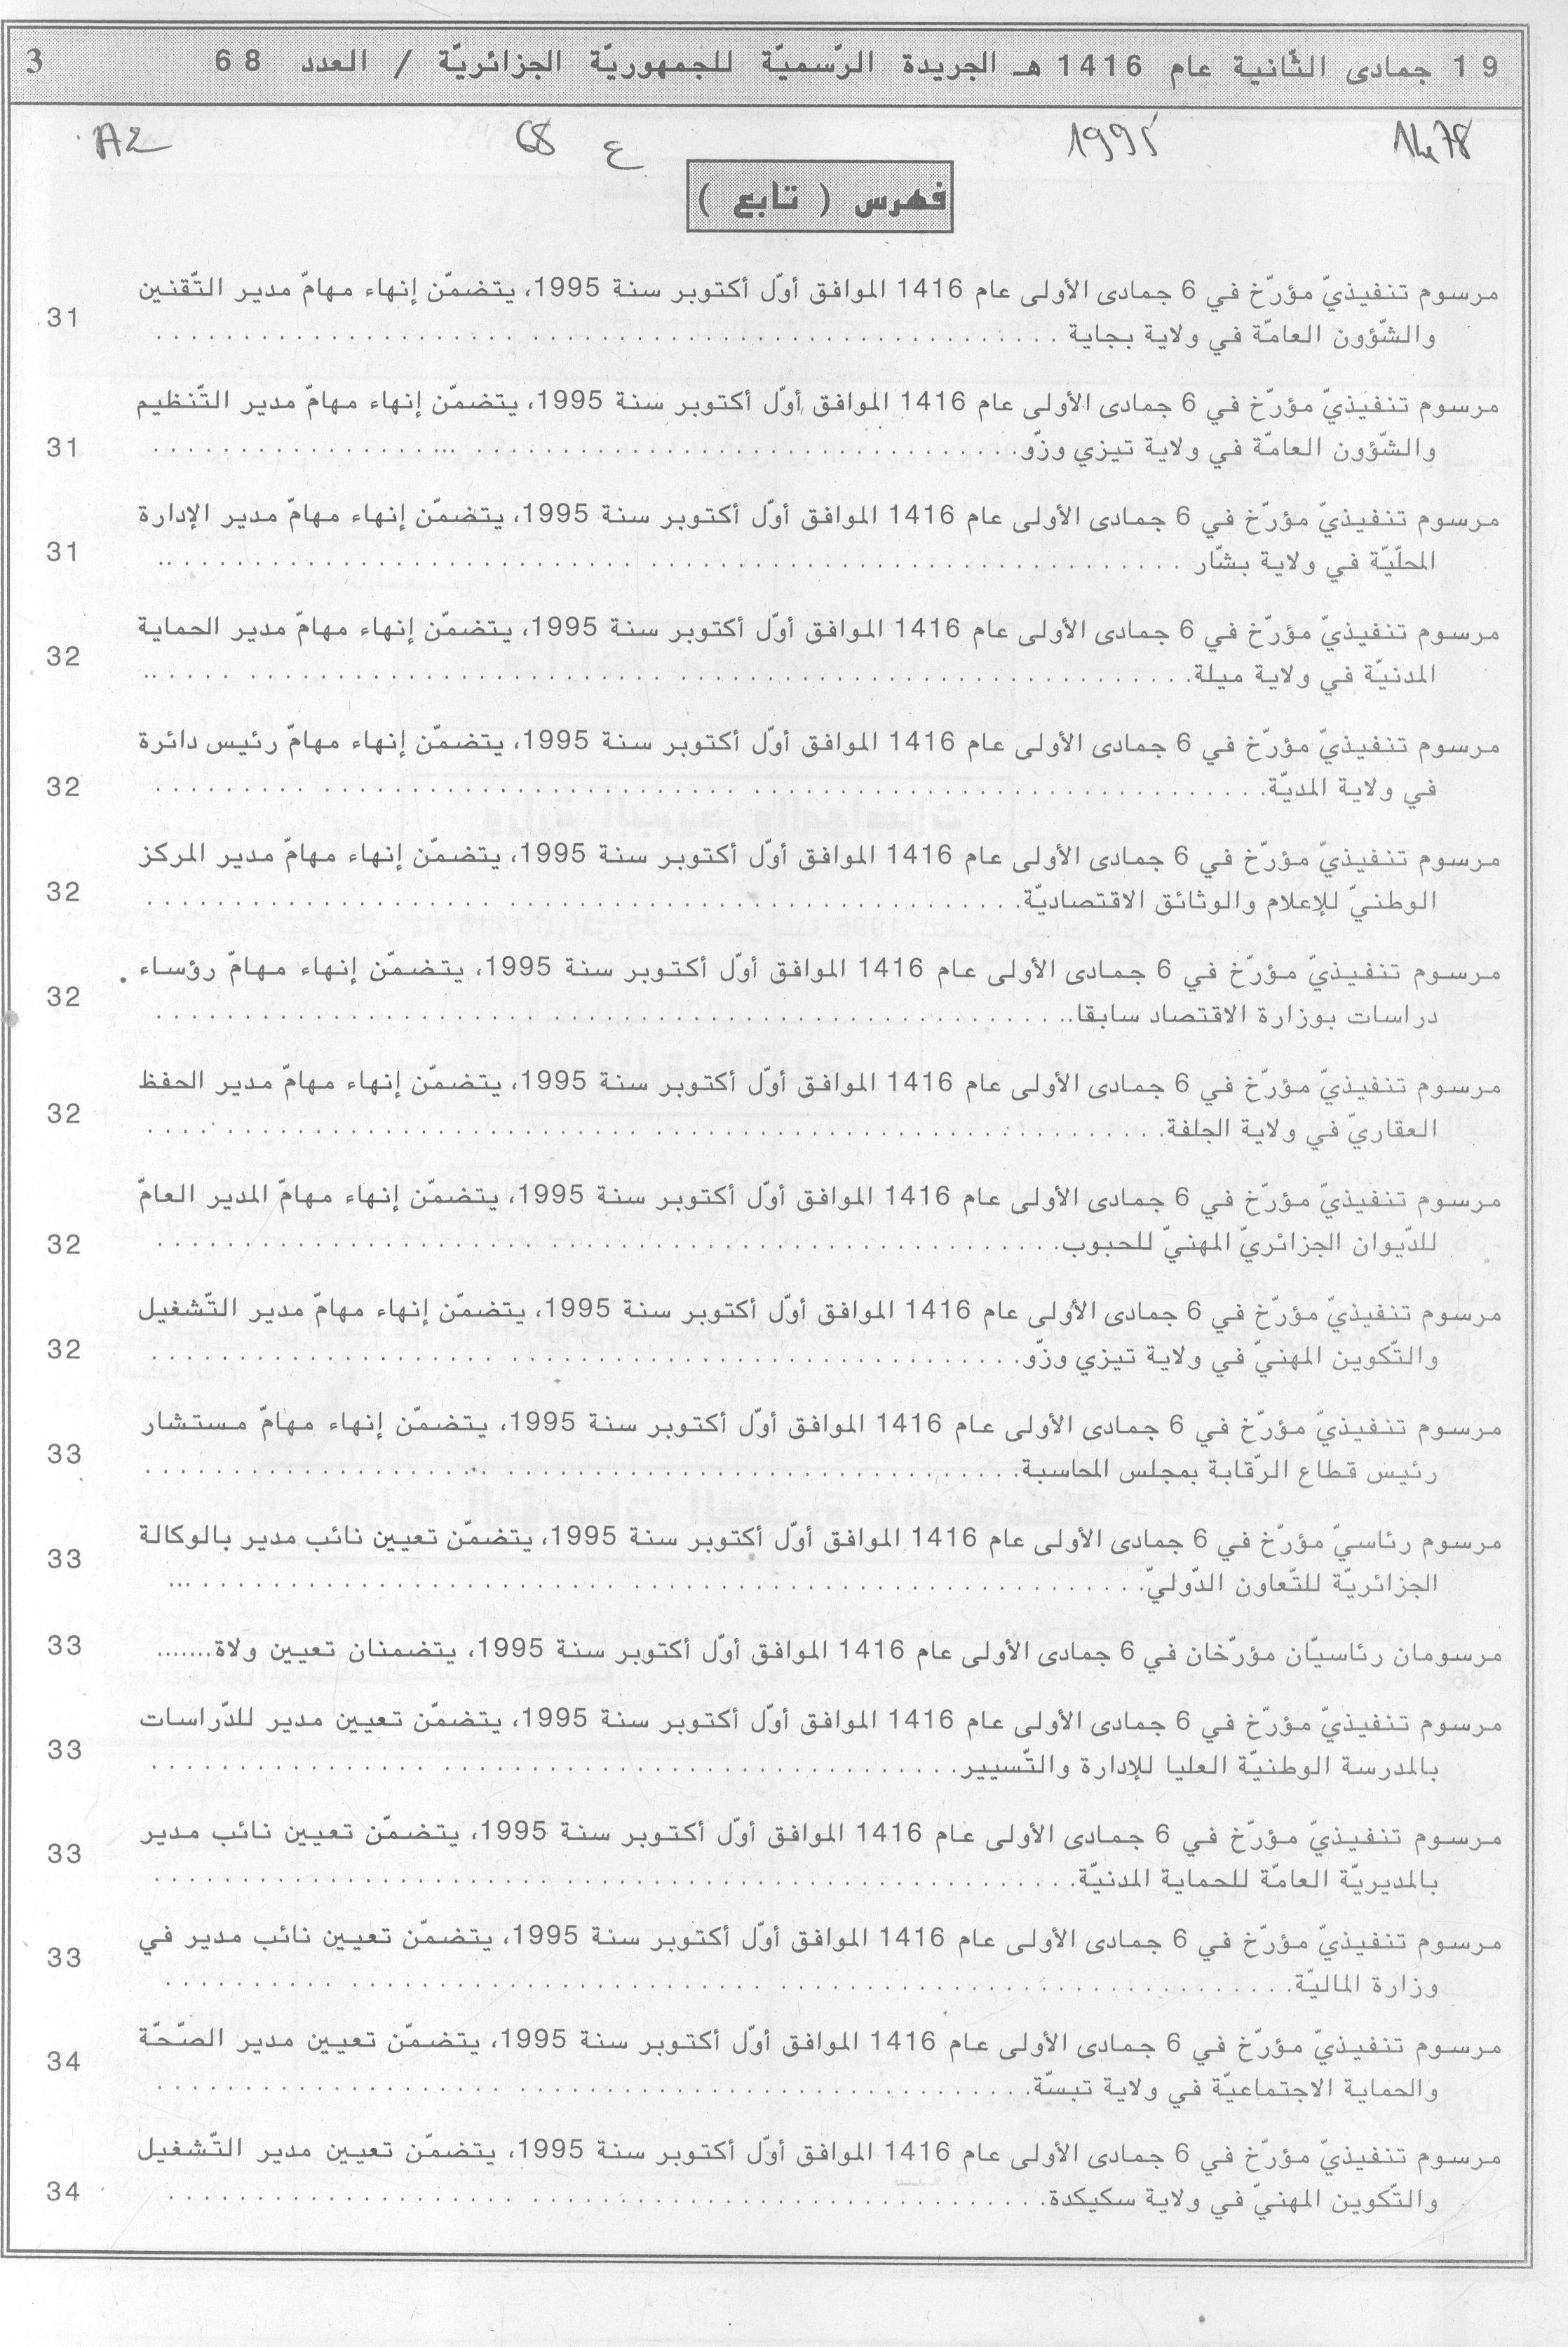 19 جمادى الثّانية عام 1416 هـ الجريدة الرّسميّة للجمهوريّة الجزائريّة / العدد 68 3
1478 1995 ع 68 AΣ
فهرس ( تابع )
مرسوم تنفيذيّ مؤرّخ في 6 جمادى الأولى عام 1416 الموافق أوّل أكتوبر سنة 1995، يتضمّن إنهاء مهامّ مدير التّقنين
والشّؤون العامّة في ولاية بجاية . . . . . . . . . . 31
مرسوم تنفيذيّ مؤرّخ في 6 جمادى الأولى عام 1416 الموافق أوّل أكتوبر سنة 1995، يتضمّن إنهاء مهامّ مدير التّنظيم
والشّؤون العامّة في ولاية تيزي وزّو. . . . . . . . . . 31
مرسوم تنفيذيّ مؤرّخ في 6 جمادى الأولى عام 1416 الموافق أوّل أكتوبر سنة 1995، يتضمّن إنهاء مهامّ مدير الإدارة
المحلّيّة في ولاية بشّار . . . . . . . . . . 31
مرسوم تنفيذيّ مؤرّخ في 6 جمادى الأولى عام 1416 الموافق أوّل أكتوبر سنة 1995، يتضمّن إنهاء مهامّ مدير الحماية
المدنيّة في ولاية ميلة. . . . . . . . . . 32
مرسوم تنفيذيّ مؤرّخ في 6 جمادى الأولى عام 1416 الموافق أوّل أكتوبر سنة 1995، يتضمّن إنهاء مهامّ رئيس دائرة
في ولاية المديّة. . . . . . . . . . 32
مرسوم تنفيذيّ مؤرّخ في 6 جمادى الأولى عام 1416 الموافق أوّل أكتوبر سنة 1995، يتضمّن إنهاء مهامّ مدير المركز
الوطنيّ للإعلام والوثائق الاقتصاديّة. . . . . . . . . . 32
مرسوم تنفيذيّ مؤرّخ في 6 جمادى الأولى عام 1416 الموافق أوّل أكتوبر سنة 1995، يتضمّن إنهاء مهامّ رؤساء
دراسات بوزارة الاقتصاد سابقا.. . . . . . . . . . 32
مرسوم تنفيذيّ مؤرّخ في 6 جمادى الأولى عام 1416 الموافق أوّل أكتوبر سنة 1995، يتضمّن إنهاء مهامّ مدير الحفظ
العقاريّ في ولاية الجلفة. . . . . . . . . . 32
مرسوم تنفيذيّ مؤرّخ في 6 جمادى الأولى عام 1416 الموافق أوّل أكتوبر سنة 1995، يتضمّن إنهاء مهامّ المدير العامّ
للدّيوان الجزائريّ المهنيّ للحبوب. . . . . . . . . . 32
مرسوم تنفيذيّ مؤرّخ في 6 جمادى الأولى عام 1416 الموافق أوّل أكتوبر سنة 1995، يتضمّن إنهاء مهامّ مدير التّشغيل
والتّكوين المهنيّ في ولاية تيزي وزّو. . . . . . . . . . 32
مرسوم تنفيذيّ مؤرّخ في 6 جمادى الأولى عام 1416 الموافق أوّل أكتوبر سنة 1995، يتضمّن إنهاء مهامّ مستشار
رئيس قطاع الرّقابة بمجلس المحاسبة. . . . . . . . . . 33
مرسوم رئاسيّ مؤرّخ في 6 جمادى الأولى عام 1416 الموافق أوّل أكتوبر سنة 1995، يتضمّن تعيين نائب مدير بالوكالة
الجزائريّة للتّعاون الدّوليّ. . . . . . . . . . 33
مرسومان رئاسيّان مؤرّخان في 6 جمادى الأولى عام 1416 الموافق أوّل أكتوبر سنة 1995، يتضمنان تعيين ولاة....... 33
مرسوم تنفيذيّ مؤرّخ في 6 جمادى الأولى عام 1416 الموافق أوّل أكتوبر سنة 1995، يتضمّن تعيين مدير للدّراسات
بالمدرسة الوطنيّة العليا للإدارة والتّسيير. . . . . . . . . . 33
مرسوم تنفيذيّ مؤرّخ في 6 جمادى الأولى عام 1416 الموافق أوّل أكتوبر سنة 1995، يتضمّن تعيين نائب مدير
بالمديريّة العامّة للحماية المدنيّة. . . . . . . . . . 33
مرسوم تنفيذيّ مؤرّخ في 6 جمادى الأولى عام 1416 الموافق أوّل أكتوبر سنة 1995، يتضمّن تعيين نائب مدير في
وزارة الماليّة. . . . . . . . . . 33
مرسوم تنفيذيّ مؤرّخ في 6 جمادى الأولى عام 1416 الموافق أوّل أكتوبر سنة 1995، يتضمّن تعيين مدير الصّحّة
والحماية الاجتماعيّة في ولاية تبسّة. . . . . . . . . . 34
مرسوم تنفيذيّ مؤرّخ في 6 جمادى الأولى عام 1416 الموافق أوّل أكتوبر سنة 1995، يتضمّن تعيين مدير التّشغيل
والتّكوين المهنيّ في ولاية سكيكدة. . . . . . . . . . 34